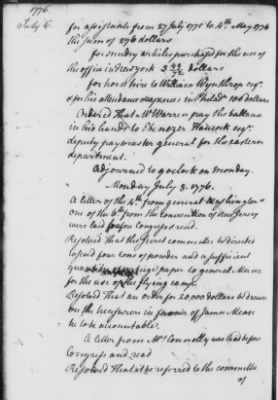 1776.
July 6. for assistants from 27 July 1775 to 4th. May 1776
the sum of 276 dollars
for sundry articles purchased for the use of
the office in New york 3 42/72 dollars
for horse hire to William Wynthrop esqr.
& for his attendance & expences in Philada. 100 dollars
Ordered That Mr Warren pay the ballance
in his hands to Ebenezer Hancock esqr.
deputy paymaster general for the eastern
department.
Adjourned to 9 oClock on monday.
Monday July 8. 1776.
A letter of the 4th. from general Washington &
one of the 6th. from the convention of New Jersey
were laid before Congress & read.
Resolved That the secret committee be directed
to send four tons of powder and a sufficient
quantity of paper to general Mercer
for the use of the flying camp.
Resolved That an order for 20,000 dollars be drawn
on the treasurers in favour of James Mease
he to be accountable.
A letter from Mr Connolly was laid before
Congress and read
Resolved That it be referred to the committee
of